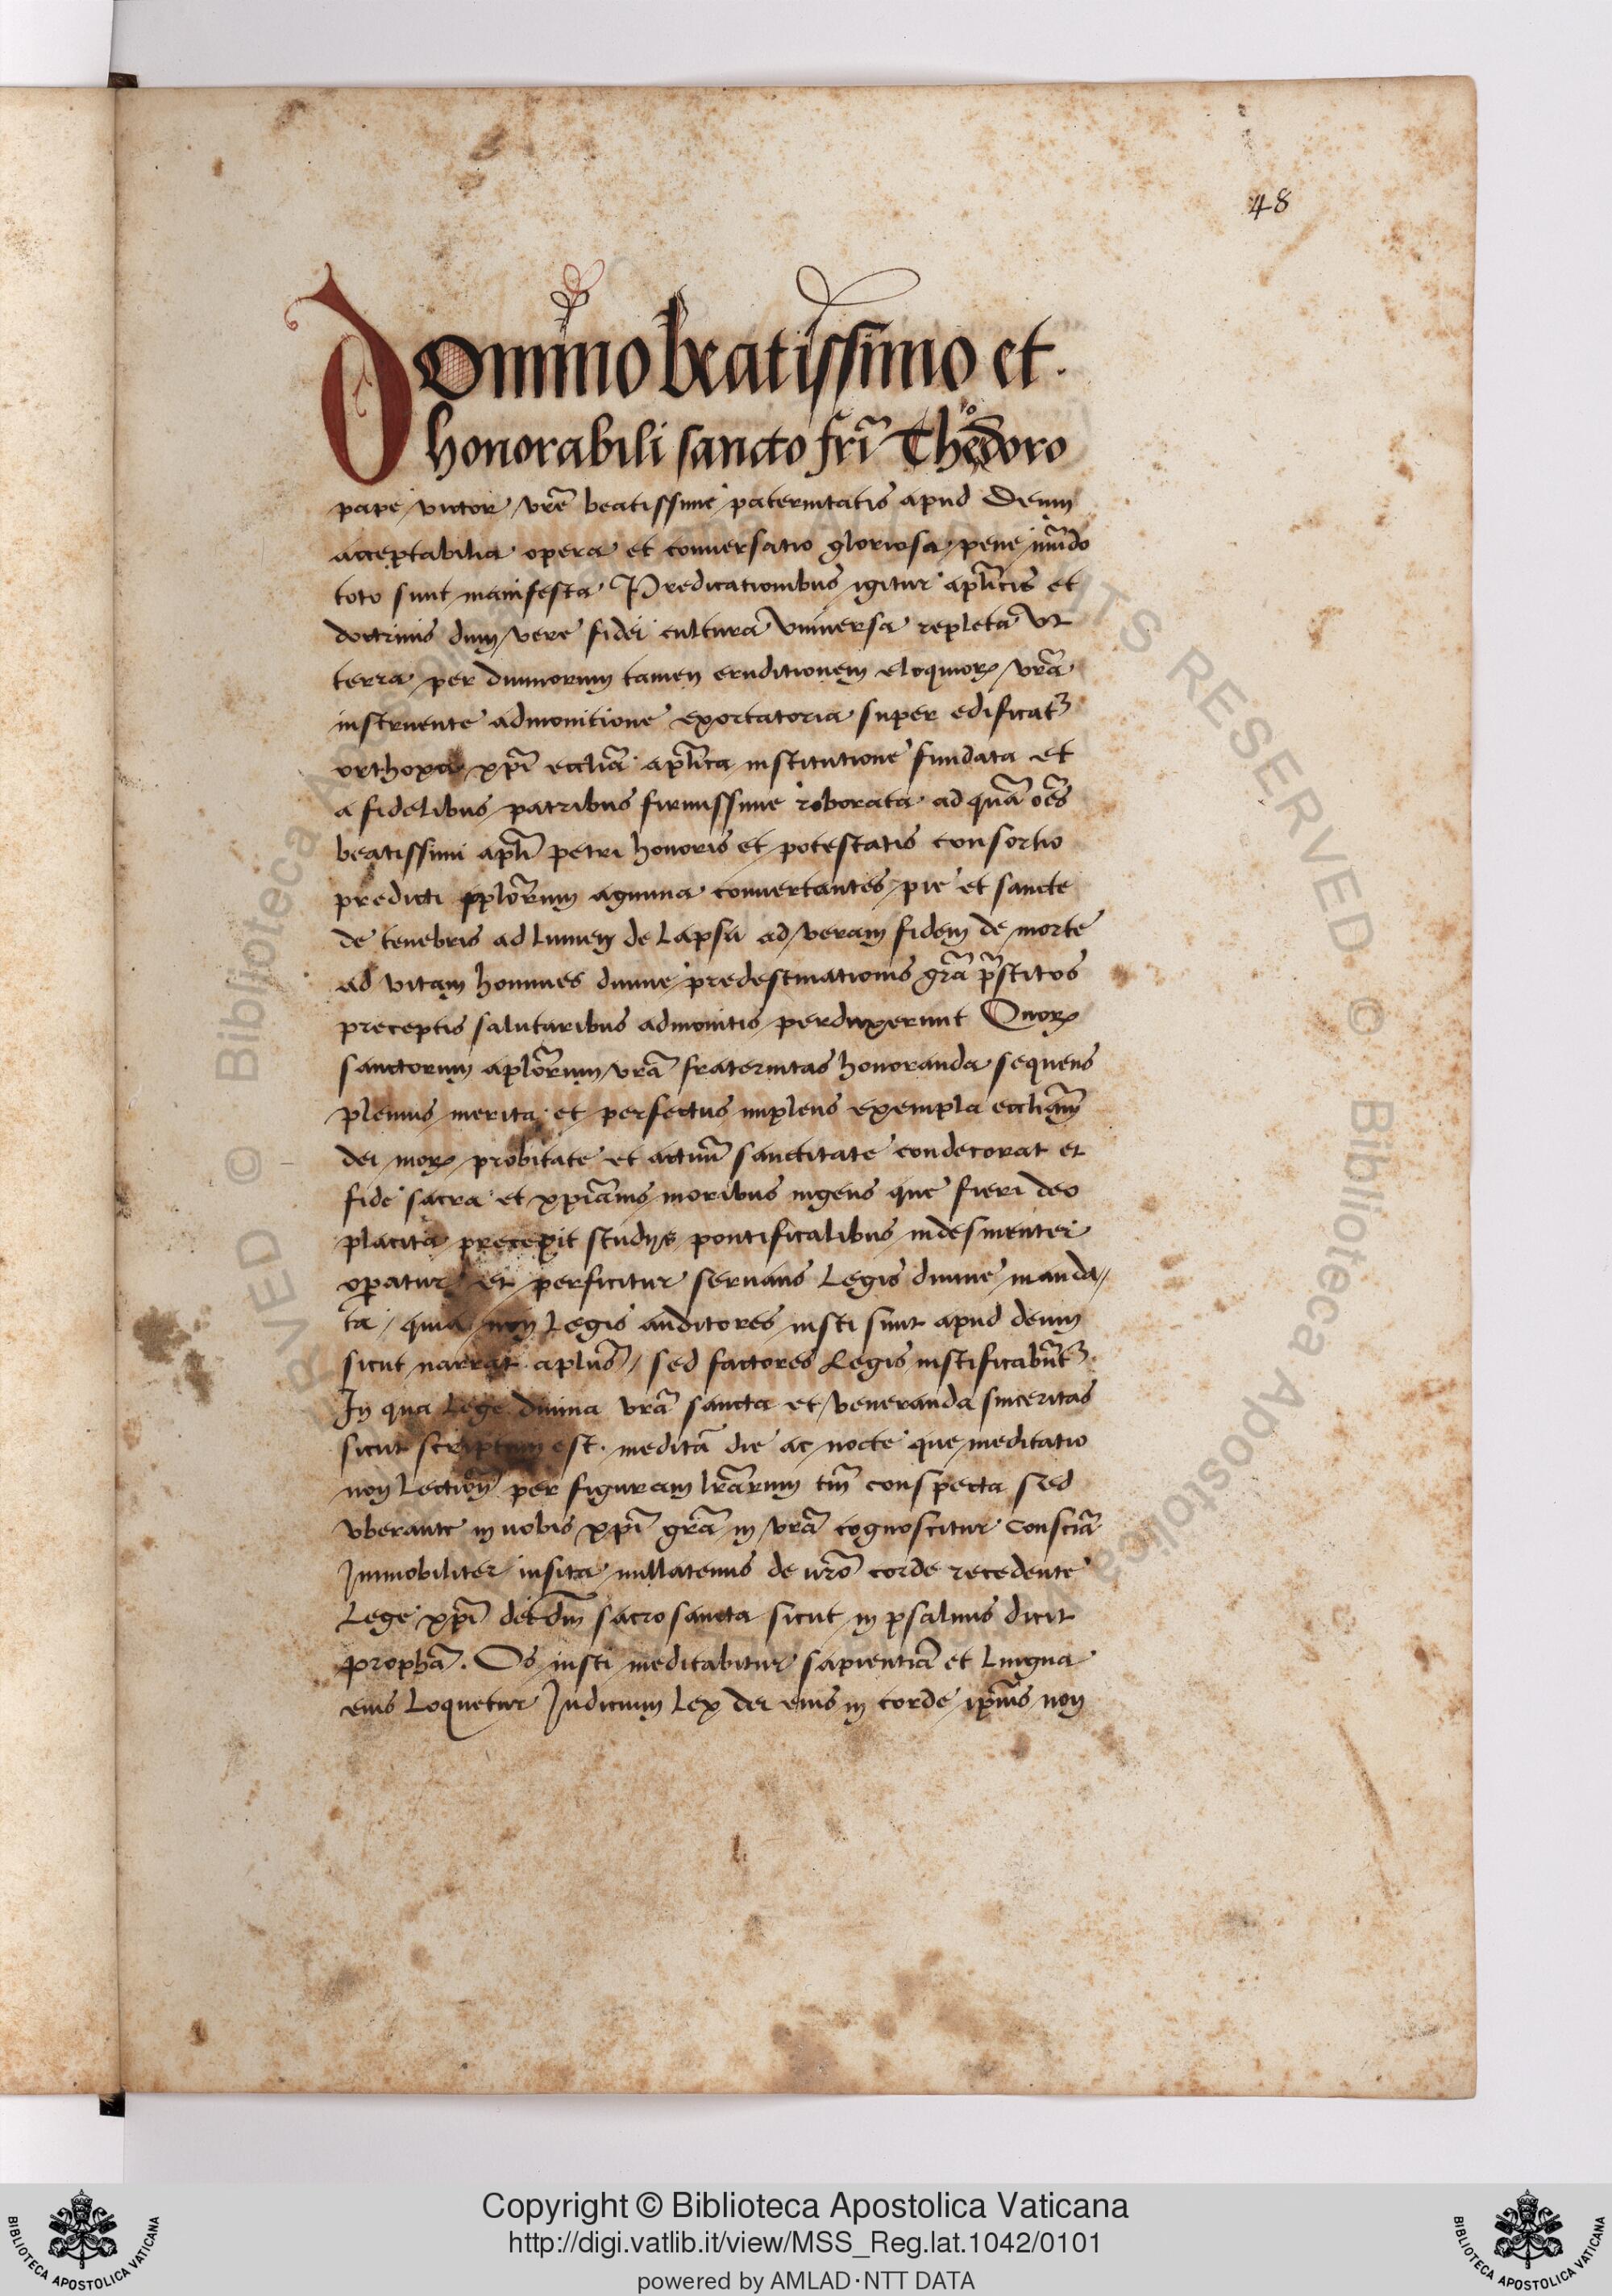 48
Domino beatissimo et.
honorabili sancto frĩ Theodoro
pape victor vrẽ beatissime paternitatis apud Deum
acceptabilia opera et conuersatio gloriosa pene mũdo
toto sunt manifesta Predicationibus igitur aplĩcis et
doctrinis dum vere fidei culturã vniuersa repletã vt
terra per diuinorum tamen eruditionem eloquioꝝ vrã
instruente admonitione exortatoria super edificatᷣ
orthoxa xpĩ eccliã aplĩca institutione fundata et
a fidelibus patribus firmissime roborata ad quã oẽs
beatissimi aplĩ petri honoris et potestatis consortio
predicti aplõrum agmina conuertantes pie et sancte
de tenebris ad lumen de lapsu ad veram fidem de morte
ad vitam homines diuine predestinationis grã p̃stitos
preceptis salutaribus admonitis perduxerunt Quoꝝ
sanctorum aplõrum vrã fraternitas honoranda sequens
plenius merita et perfectus implens exempla eccliãm
dei moꝝ probitate et actuũ sanctitate condecorat et
fide sacra et xpiãnis moribus ingens que fieri deo
placita precepit studijs pontificalibus indesinenter
oꝑatur et perficitur seruans legis diuine manda〃
ta / quia non legis auditores iusti sunt apud deum
sicut narrat aplus̃ / sed factores legis iustificabũtᷣ
In qua lege diuina vrã sancta et veneranda sinceritas
sicut scriptum est. meditã die ac nocte que meditatio
non lectiõn per figuram lrãrum tm̃ conspecta sed
vberante in vobis xpĩ grã in vrã cognoscitur consciã
Immobiliter insita nullatenus de vrõ corde recedente
lege xpĩ dei dm̃ sacro sancta sicut in psalmis dicit
prophã. Os iusti meditabitur sapientiã et lingua
eius loquetur Iudicium lex dei eius in corde ipĩus non
Copyright © Biblioteca Apostolica Vaticana
http://digi.vatlib.it/view/MSS_Reg.lat.1042/0101
powered by AMLAD·NTT DATA
BIBLIOTECA APOSTOLICA VATICANA
BIBLIOTECA APOSTOLICA VATICANA